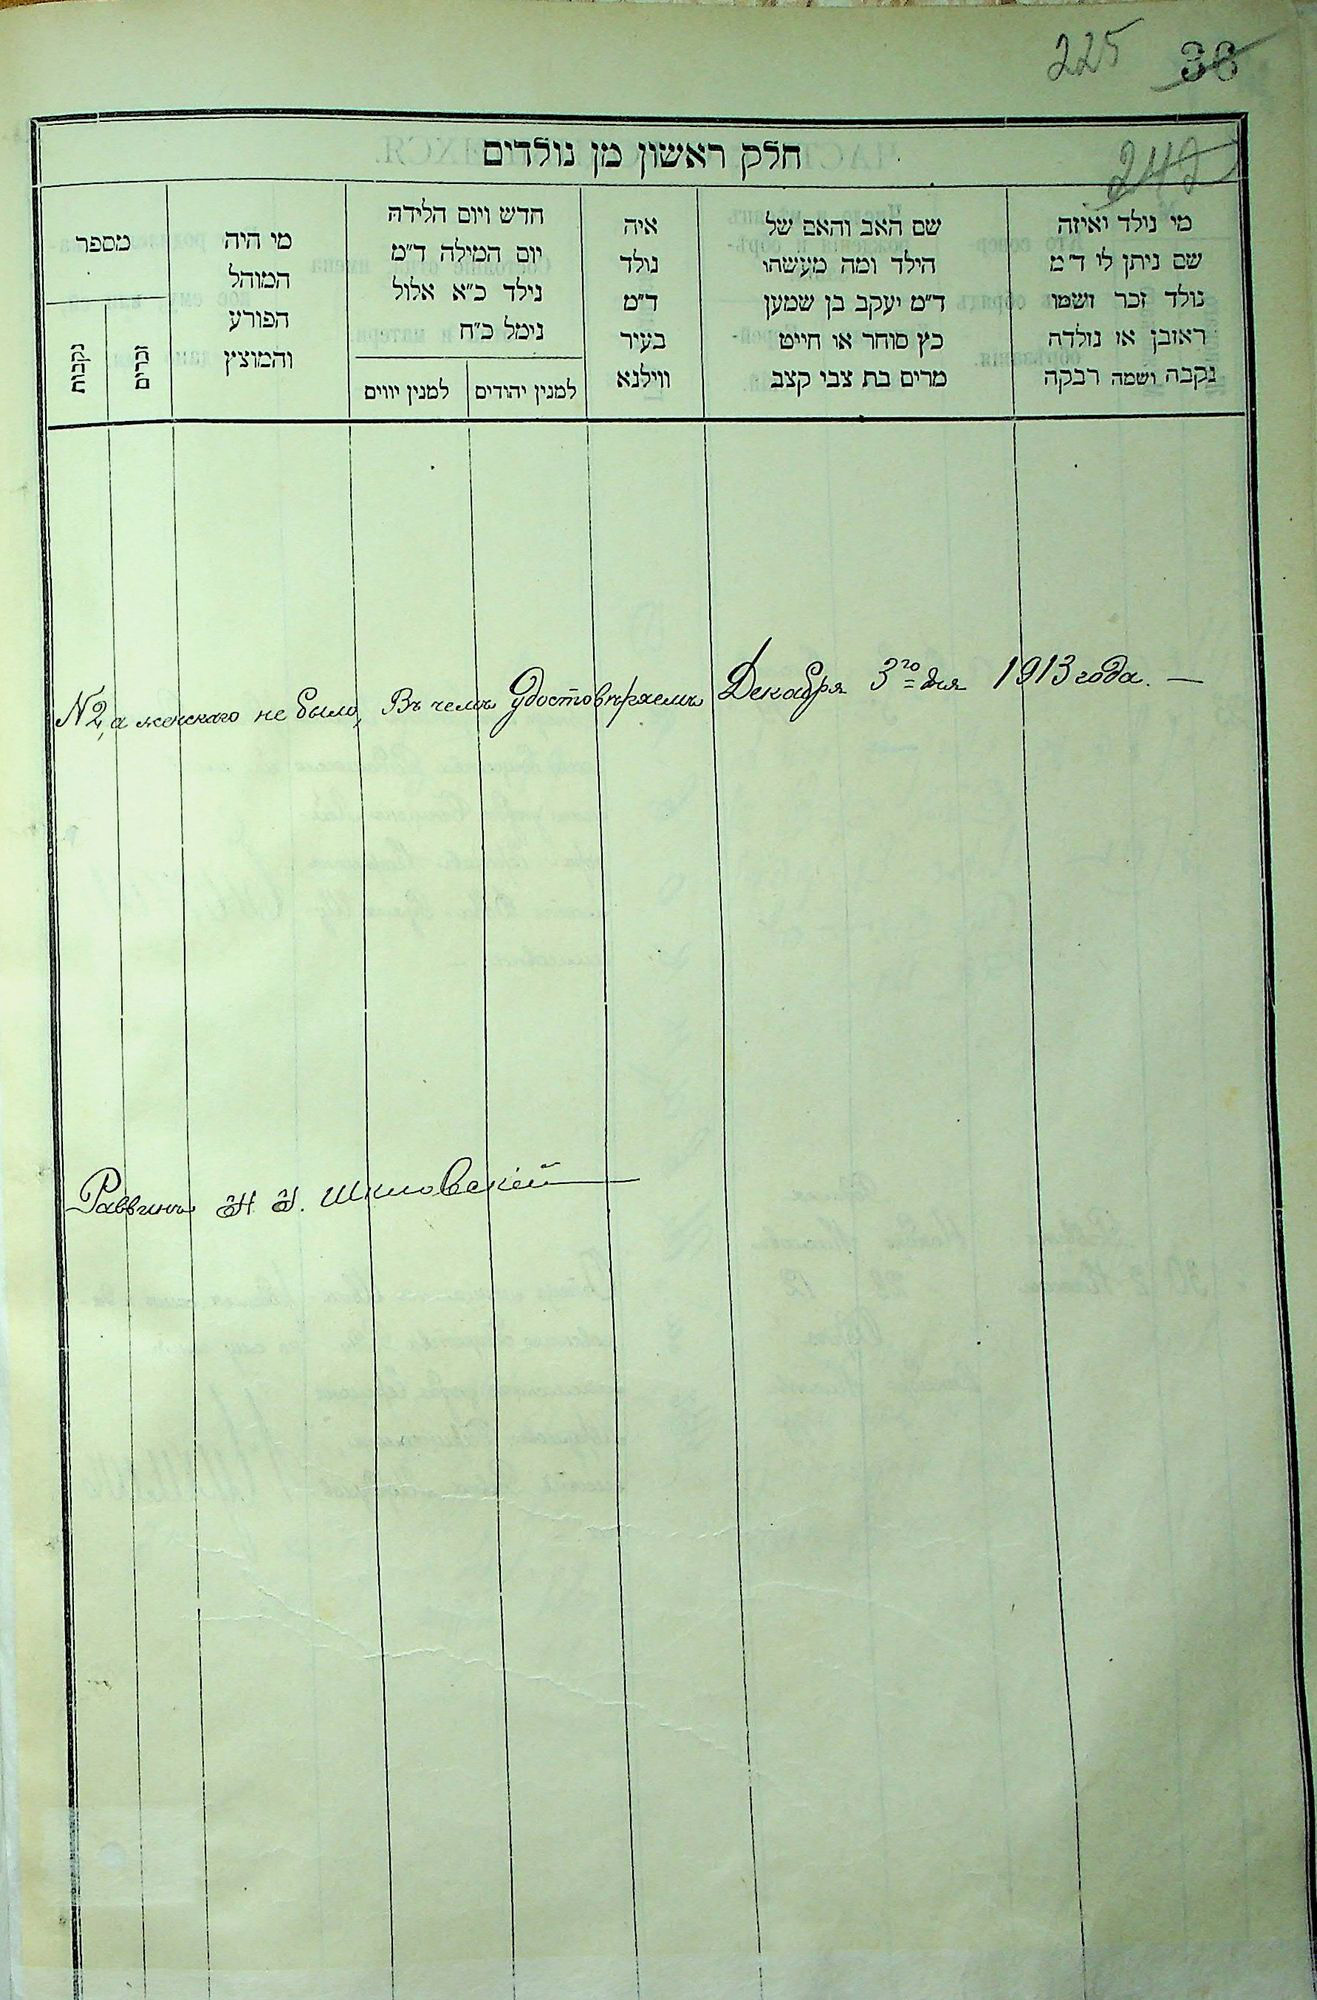 225 36
242
חלק ראשון מן נולדים
מי נולד ואיזה
שם ניתן לי ד״מ
נולד זכר ושמו
ראובן או נולדה
נקבה ושמה רבקה
שם האב והאם של
הילד ומה מעשהו
ד״מ יעקב בן שמעון
כץ סוחר או חייט
מרים בת צבי קצב
איה
נולד
ד״מ
בעיר
ווילנא
חדש ויום הלידה
יום המילה ד״מ
נילד כ״א אלול
נימל כ״ח
למנין יהודים
למנין יווים
מי היה
המוהל
הפורע
והמוצץ
מספר
זכרים
נקבות
№2, а женскаго не было, Въ чемъ Удостовѣряемъ Декабря 3го дня 1913 года. —
Раввинъ Н. И. Шкловскій